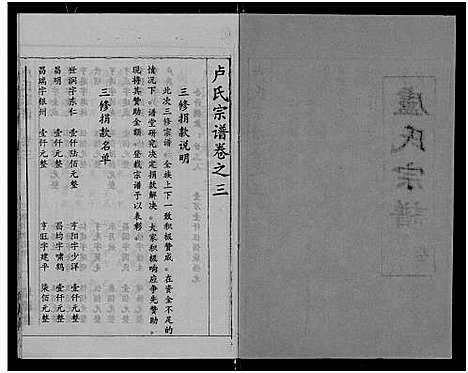 盧氏宗譜
卢氏宗谱卷之三
三修捐款说明
此次三修宗谱。全族上下一致积极赞成。在资金不足的
情况下。谱堂研究决定捐款解决。大家积极响应争先赞助。
现将其赞助金额。登载宗谱予以表彰。
三修捐款名单
登润字东仁 壹仟陆佰元整 亨阳字少洋 壹仟元整
昌明 壹仟元整 昌均字啸鹤 壹仟元整
昌瑞字银州 壹仟元整 亨旺字建平 柒佰元整